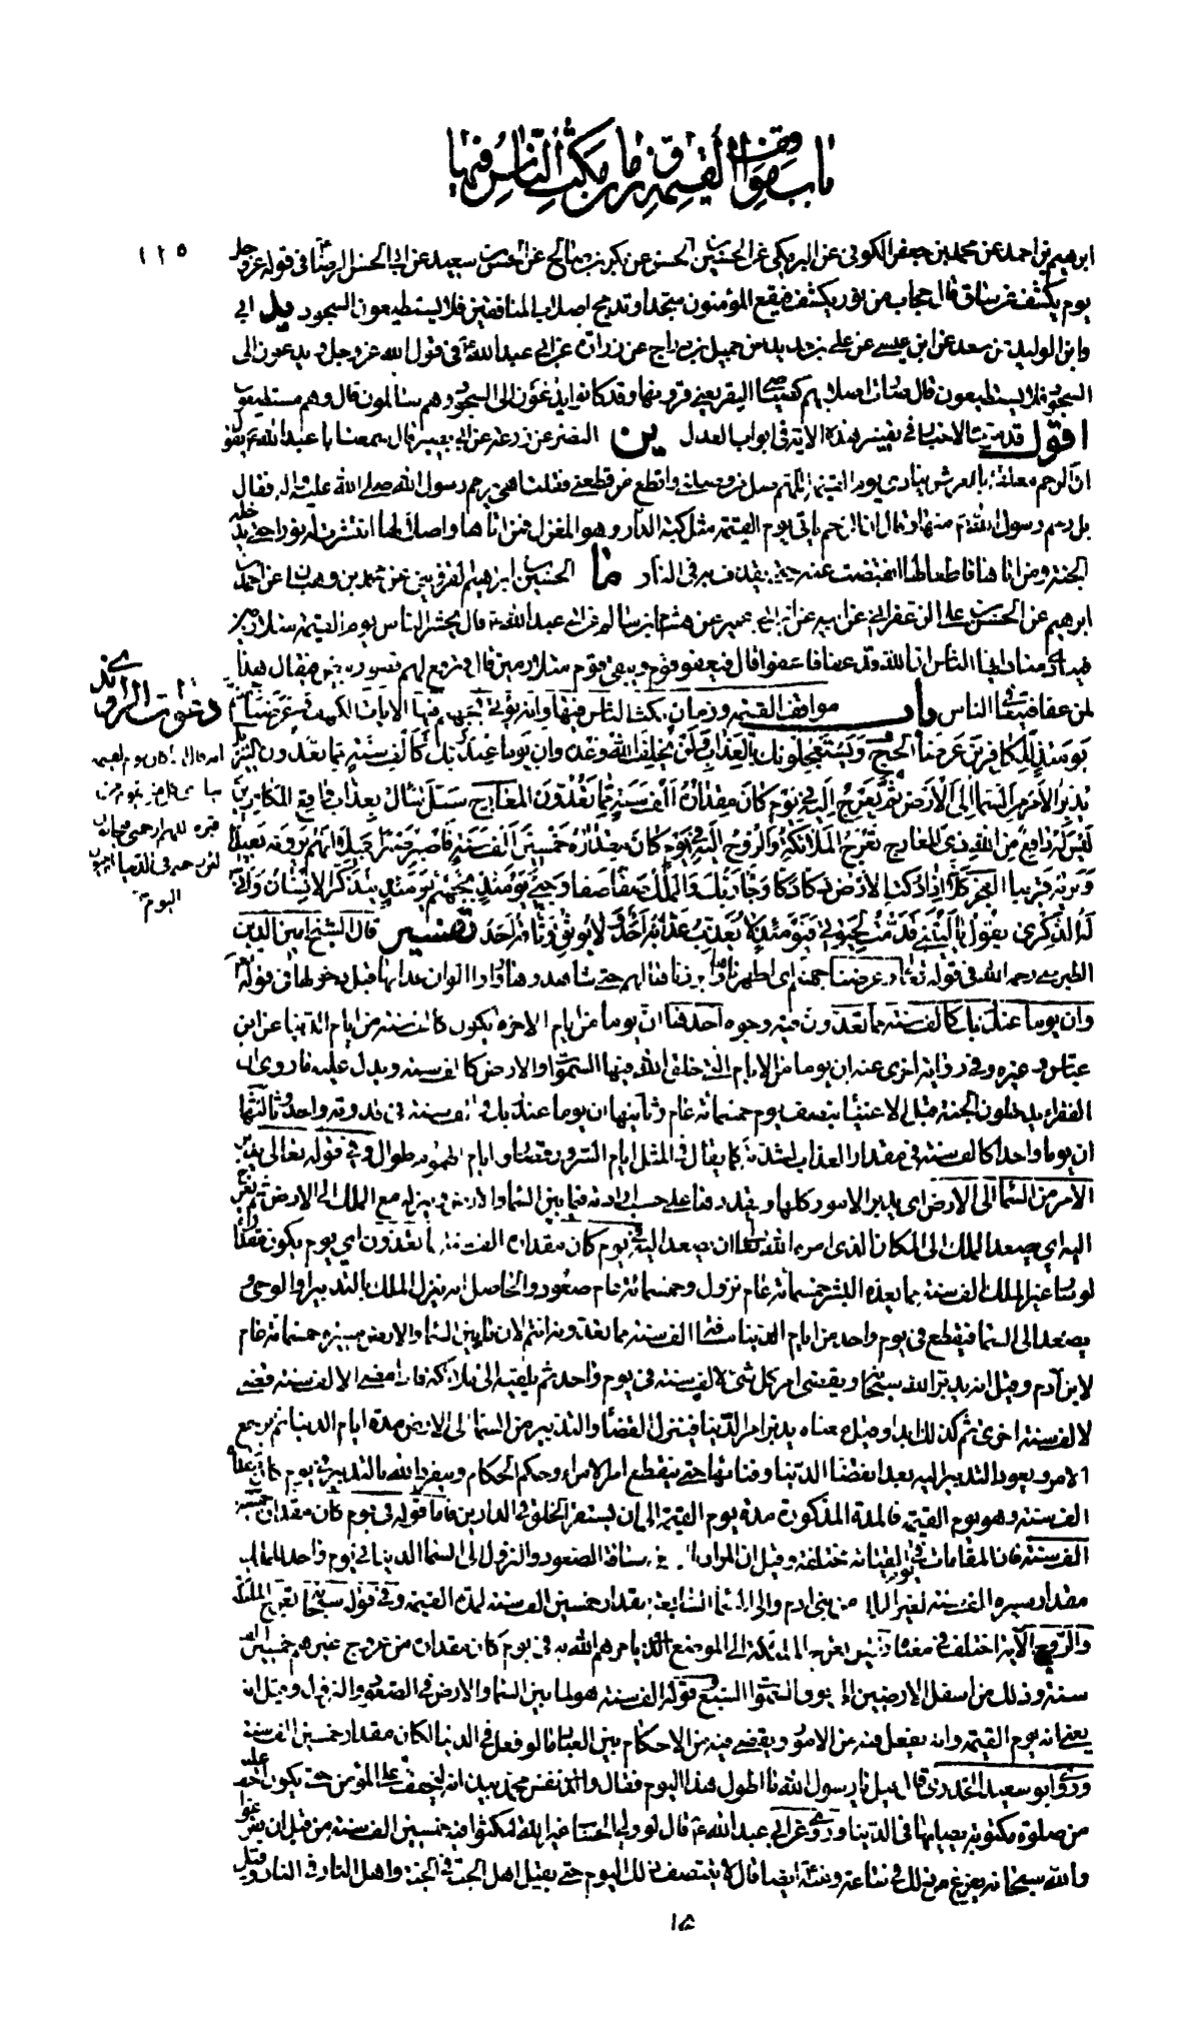 باب مواقف القيمة و زمان مكث الناس فيها
١٢٥
ابرهيم بن احمد عن محمد بن جعفر الكوفي عن البرمكي عن الحسين بن الحسن عن بكر بن صالح عن الحسن بن سعيد عن ابي الحسن الرضا ع في قوله عز وجل
يوم يكشف عن ساق قال حجاب من نور يكشف فيقع المؤمنون سجدا وتدمج اصلاب المنافقين فلا يستطيعون السجود يد ابي
وابن الوليد عن سعد عن ابن عيسى عن علي بن حديد عن جميل بن دراج عن زرارة عن ابي عبد الله ع في قول الله عز وجل ويدعون الى
السجود فلا يستطيعون قال صارت اصلابهم كصياصي البقر يعني قرونها وقد كانوا يدعون الى السجود وهم سالمون قال وهم مستطيعون
اقول قد مرت الاخبار في تفسير هذه الاية في ابواب العدل ين النضر عن زرعة عن ابي بصير قال سمعت ابا عبد الله ع يقول
ان الرحم معلقة بالعرش ينادي يوم القيمة اللهم صل من وصلني واقطع من قطعني فقلت اهي رحم رسول الله صلى الله عليه واله فقال
بل رحم رسول الله ص منها وقال ان الرحم ياتي يوم القيمة مثل كبة المدار وهو المغزل فمن اتاها واصلا لها انتشرت له نورا حتى يدخله
الجنة ومن اتاها قاطعا لها انقبضت عنه حتى يقذف به في النار ما الحسين بن ابرهيم القزويني عن محمد بن وهبان عن احمد بن
ابرهيم عن الحسن بن علي الزعفراني عن ابيه عن ابن ابي عمير عن هشام بن سالم عن ابي عبد الله ع قال يحشر الناس يوم القيمة متلازمين
فينادي مناد ايها الناس ان الله قد عفا فاعفوا قال فيعفو قوم ويبقى قوم متلازمين قال فترفع لهم قصور بيض فيقال هذا
لمن عفا فيتعافى الناس باب مواقف القيمة وزمان مكث الناس فيها وانه يؤتى بجهنم فيها الايات الكهف وعرضنا جهنم
يومئذ للكافرين عرضا الحج ويستعجلونك بالعذاب ولن يخلف الله وعده وان يوما عند ربك كالف سنة مما تعدون التنزيل
يدبر الامر من السماء الى الارض ثم يعرج اليه في يوم كان مقداره الف سنة مما تعدون المعارج سئل سائل بعذاب واقع للكافرين
ليس له دافع من الله ذي المعارج تعرج الملائكة والروح اليه في يوم كان مقداره خمسين الف سنة فاصبر صبرا جميلا انهم يرونه بعيدا
ونريه قريبا الفجر كلا اذا دكت الارض دكا دكا وجاء ربك والملك صفا صفا وجيء يومئذ بجهنم يومئذ يتذكر الانسان وانى
له الذكرى يقول يا ليتني قدمت لحيوتي فيومئذ لا يعذب عذابه احد ولا يوثق وثاقه احد تفسير قال الشيخ امين الدين
الطبرسي رحمه الله في قوله تعالى وعرضنا جهنم اي اظهرنا وابرزنا لهم حتى شاهدوها وراوا الوان عذابها قبل دخولها في قوله تعالى
وان يوما عند ربك كالف سنة مما تعدون فيه وجوه احدها ان يوما من ايام الاخرة يكون كالف سنة من ايام الدنيا عن ابن
عباس وغيره وفي رواية اخرى عنه ان يوما من الايام التي خلق الله فيها السموات والارض كالف سنة ويدل عليه ما روي ان
الفقراء يدخلون الجنة قبل الاغنياء بنصف يوم خمسمائة عام وثانيها ان يوما عند ربك والف سنة في قدرته واحد وثالثها
ان يوما واحدا كالف سنة في مقدار العذاب لشدته كما يقال في المثل ايام السرور قصار وايام الهموم طوال وفي قوله تعالى يدبر
الامر من السماء الى الارض اي يدبر الامور كلها ويقدرها على حسب ارادته فيما بين السماء والارض وينزله مع الملك الى الارض ثم يعرج
اليه اي يصعد الملك الى المكان الذي امره الله تعالى ان يصعد اليه في يوم كان مقداره الف سنة مما تعدون اي يوم يكون مقداره
لو سار غير الملك الف سنة مما يعده البشر خمسمائة عام نزول وخمسمائة عام صعود والحاصل انه ينزل الملك بالتدبير او الوحي و
يصعد الى السماء فيقطع في يوم واحد من ايام الدنيا مسافة الف سنة مما تعدونه انتم لان ما بين السماء والارض مسيرة خمسمائة عام
لابن آدم وقيل انه يدبر الله سبحانه ويقضي امر كل شئ لالف سنة في يوم واحد ثم يلقيه الى ملائكته فاذا مضى الالف سنة قضى
لالف سنة اخرى ثم كذلك ابدا وقيل معناه يدبر امر الدنيا فينزل القضاء والتدبير من السماء الى الارض مدة ايام الدنيا ثم يرجع
الامر ويعود التدبير اليه بعد انقضاء الدنيا وفنائها حتى ينقطع امر الامراء وحكم الحكام وينفرد الله بالتدبير في يوم كان مقداره
الف سنة وهو يوم القيمة فالمدة المذكورة مدة يوم القيمة الى ان يستقر الخلق في الدارين فاما قوله في يوم كان مقداره خمسين
الف سنة فان المقامات في يوم القيمة مختلفة وقيل ان المراد ان مسافة الصعود والنزول الى السماء الدنيا في يوم واحد للملك
مقدار مسيرة الف سنة لغير الملك من بني ادم والى السماء السابعة مقدار خمسين الف سنة لمدة القيمة وفي قوله سبحانه تعرج الملئكة
والروح الآية اختلف في معناه فقيل تعرج الملئكة الى الموضع الذي يامرهم الله به في يوم كان مقداره من عروج غيرهم خمسين الف
سنة وذلك من اسفل الارضين الى فوق السموات السبع وقوله الف سنة هو لما بين السماء والارض في الصعود والنزول وقيل انه
يعني انه يوم القيمة وانه يفعل فيه من الامور ويقضى فيه من الاحكام بين العباد ما لو فعل في الدنيا لكان مقدار خمسين الف سنة
وروى ابو سعيد الخدري قال قيل يا رسول الله ما اطول هذا اليوم فقال والذي نفس محمد بيده انه ليخفف على المؤمن حتى يكون اخف عليه
من صلوة مكتوبة يصليها في الدنيا وروي عن ابي عبد الله ع قال لو ولي الحساب غير الله لمكثوا فيه خمسين الف سنة من قبل ان يفرغوا
والله سبحانه يفرغ من ذلك في ساعة وعنه ايضا قال لا ينتصف ذلك اليوم حتى يقيل اهل الجنة في الجنة واهل النار في النار وقيل
دعوات الراوندي
اليوم
١٥